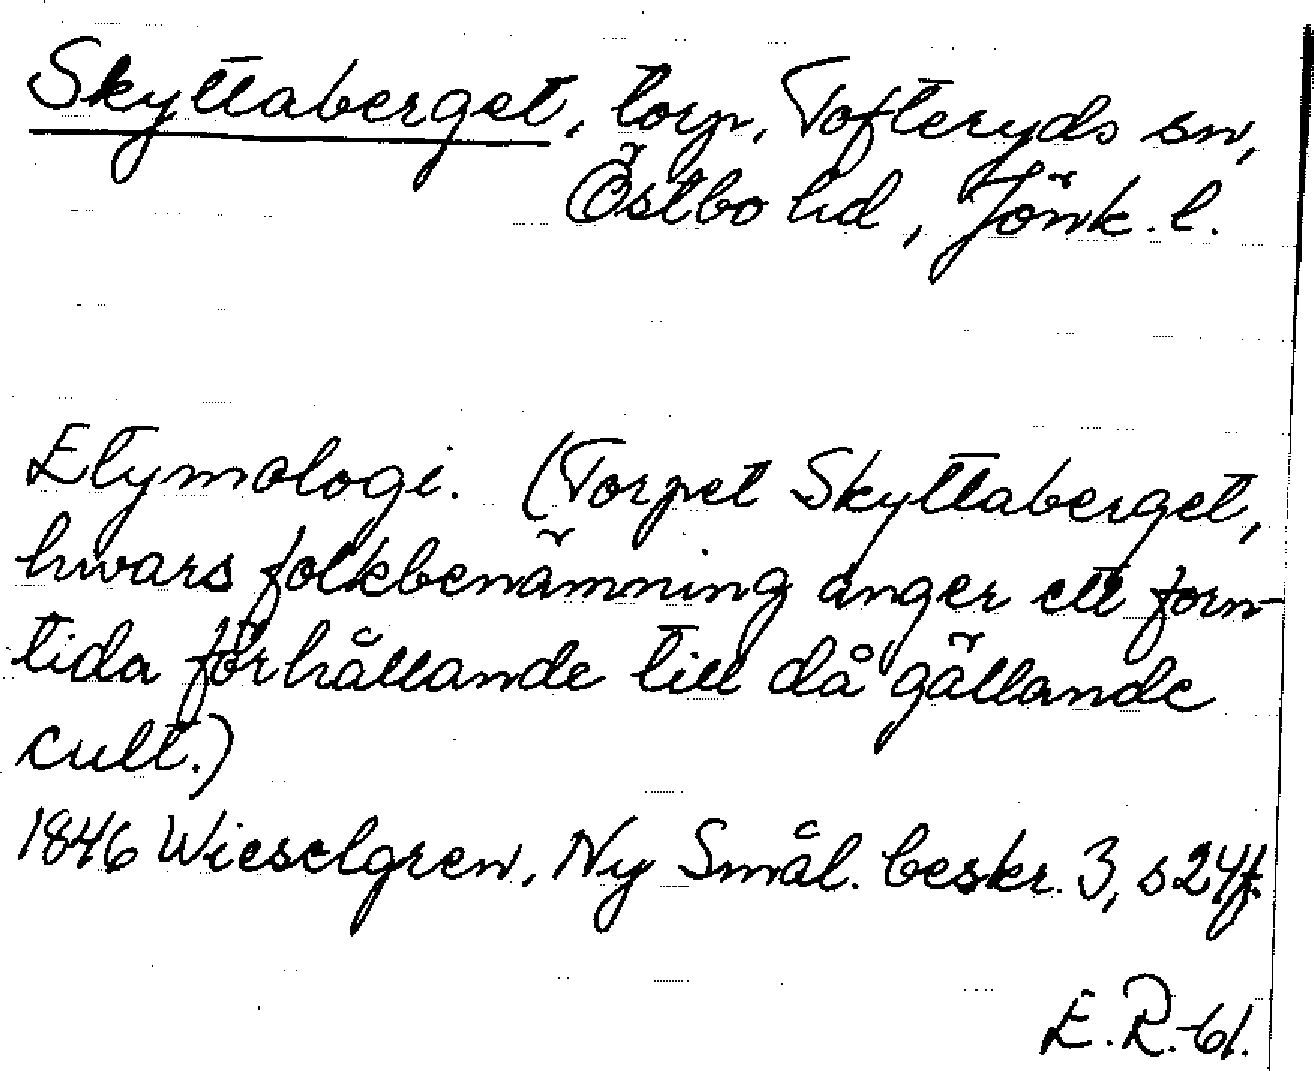 Skyttaberget, torp, Tofteryds sn,
Östbo hd, Jönk. l.
Etymologi. (Torpet Skyttaberget,
hwars folkbenämning anger ett forn-
tida förhållande till då gällande
cult.)
1846 Wieselgren, Ny Smål. beskr. 3, s 24f.
E.R.-61.